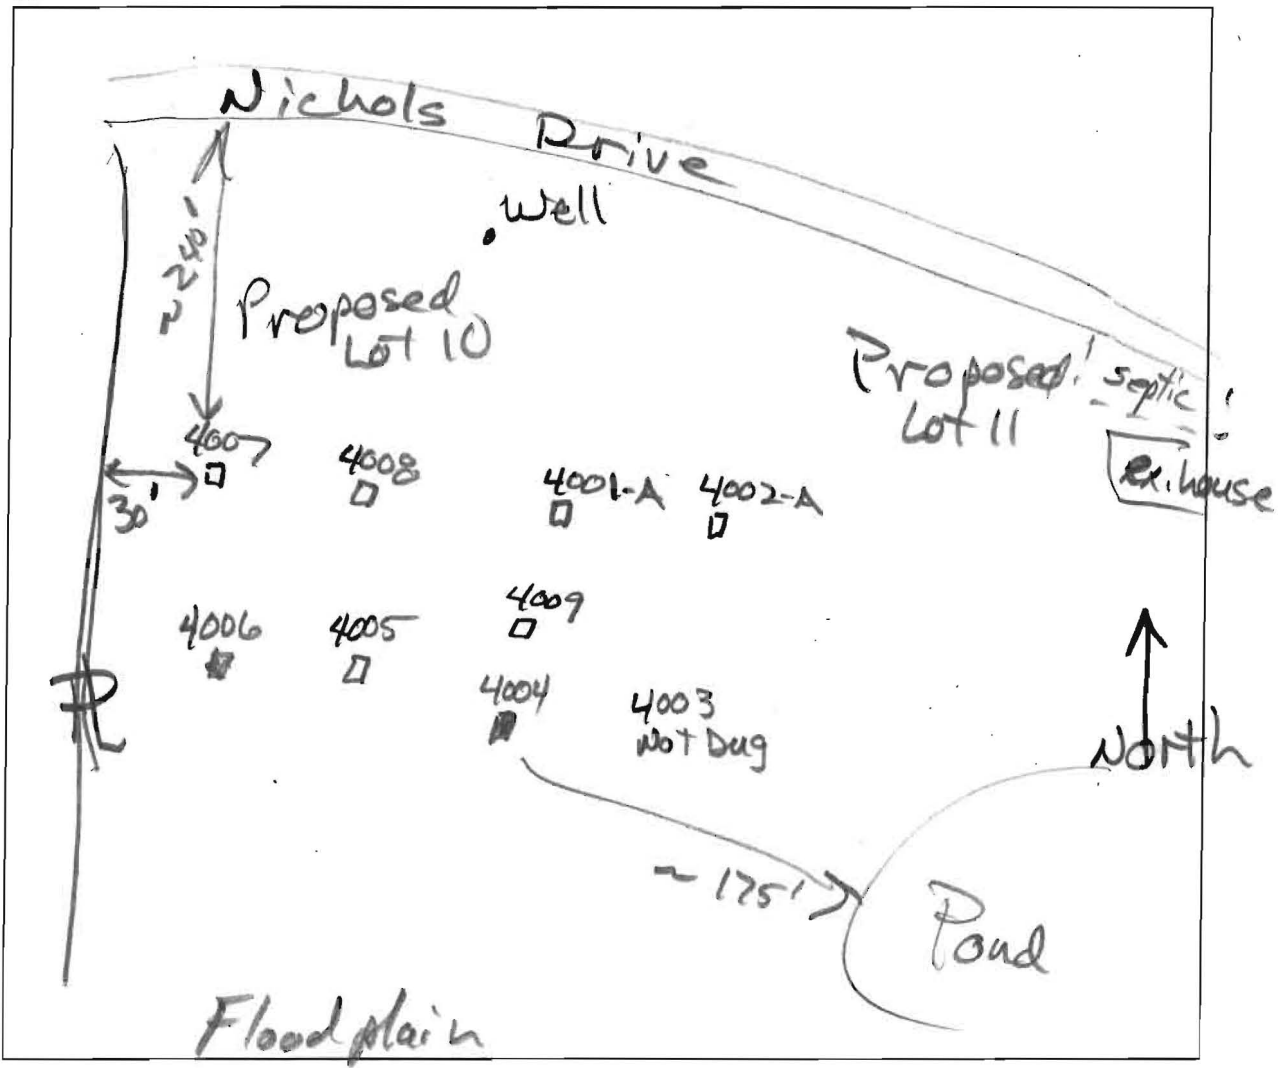 Nichols Drive
Well
~ 240'
Proposed
Lot 10
Proposed
Lot 11
septic
ex. house
4007
4008
4001-A
4002-A
30'
4009
4006
4005
4004
4003
Not Dug
PL
North
~ 175'
Pond
Floodplain